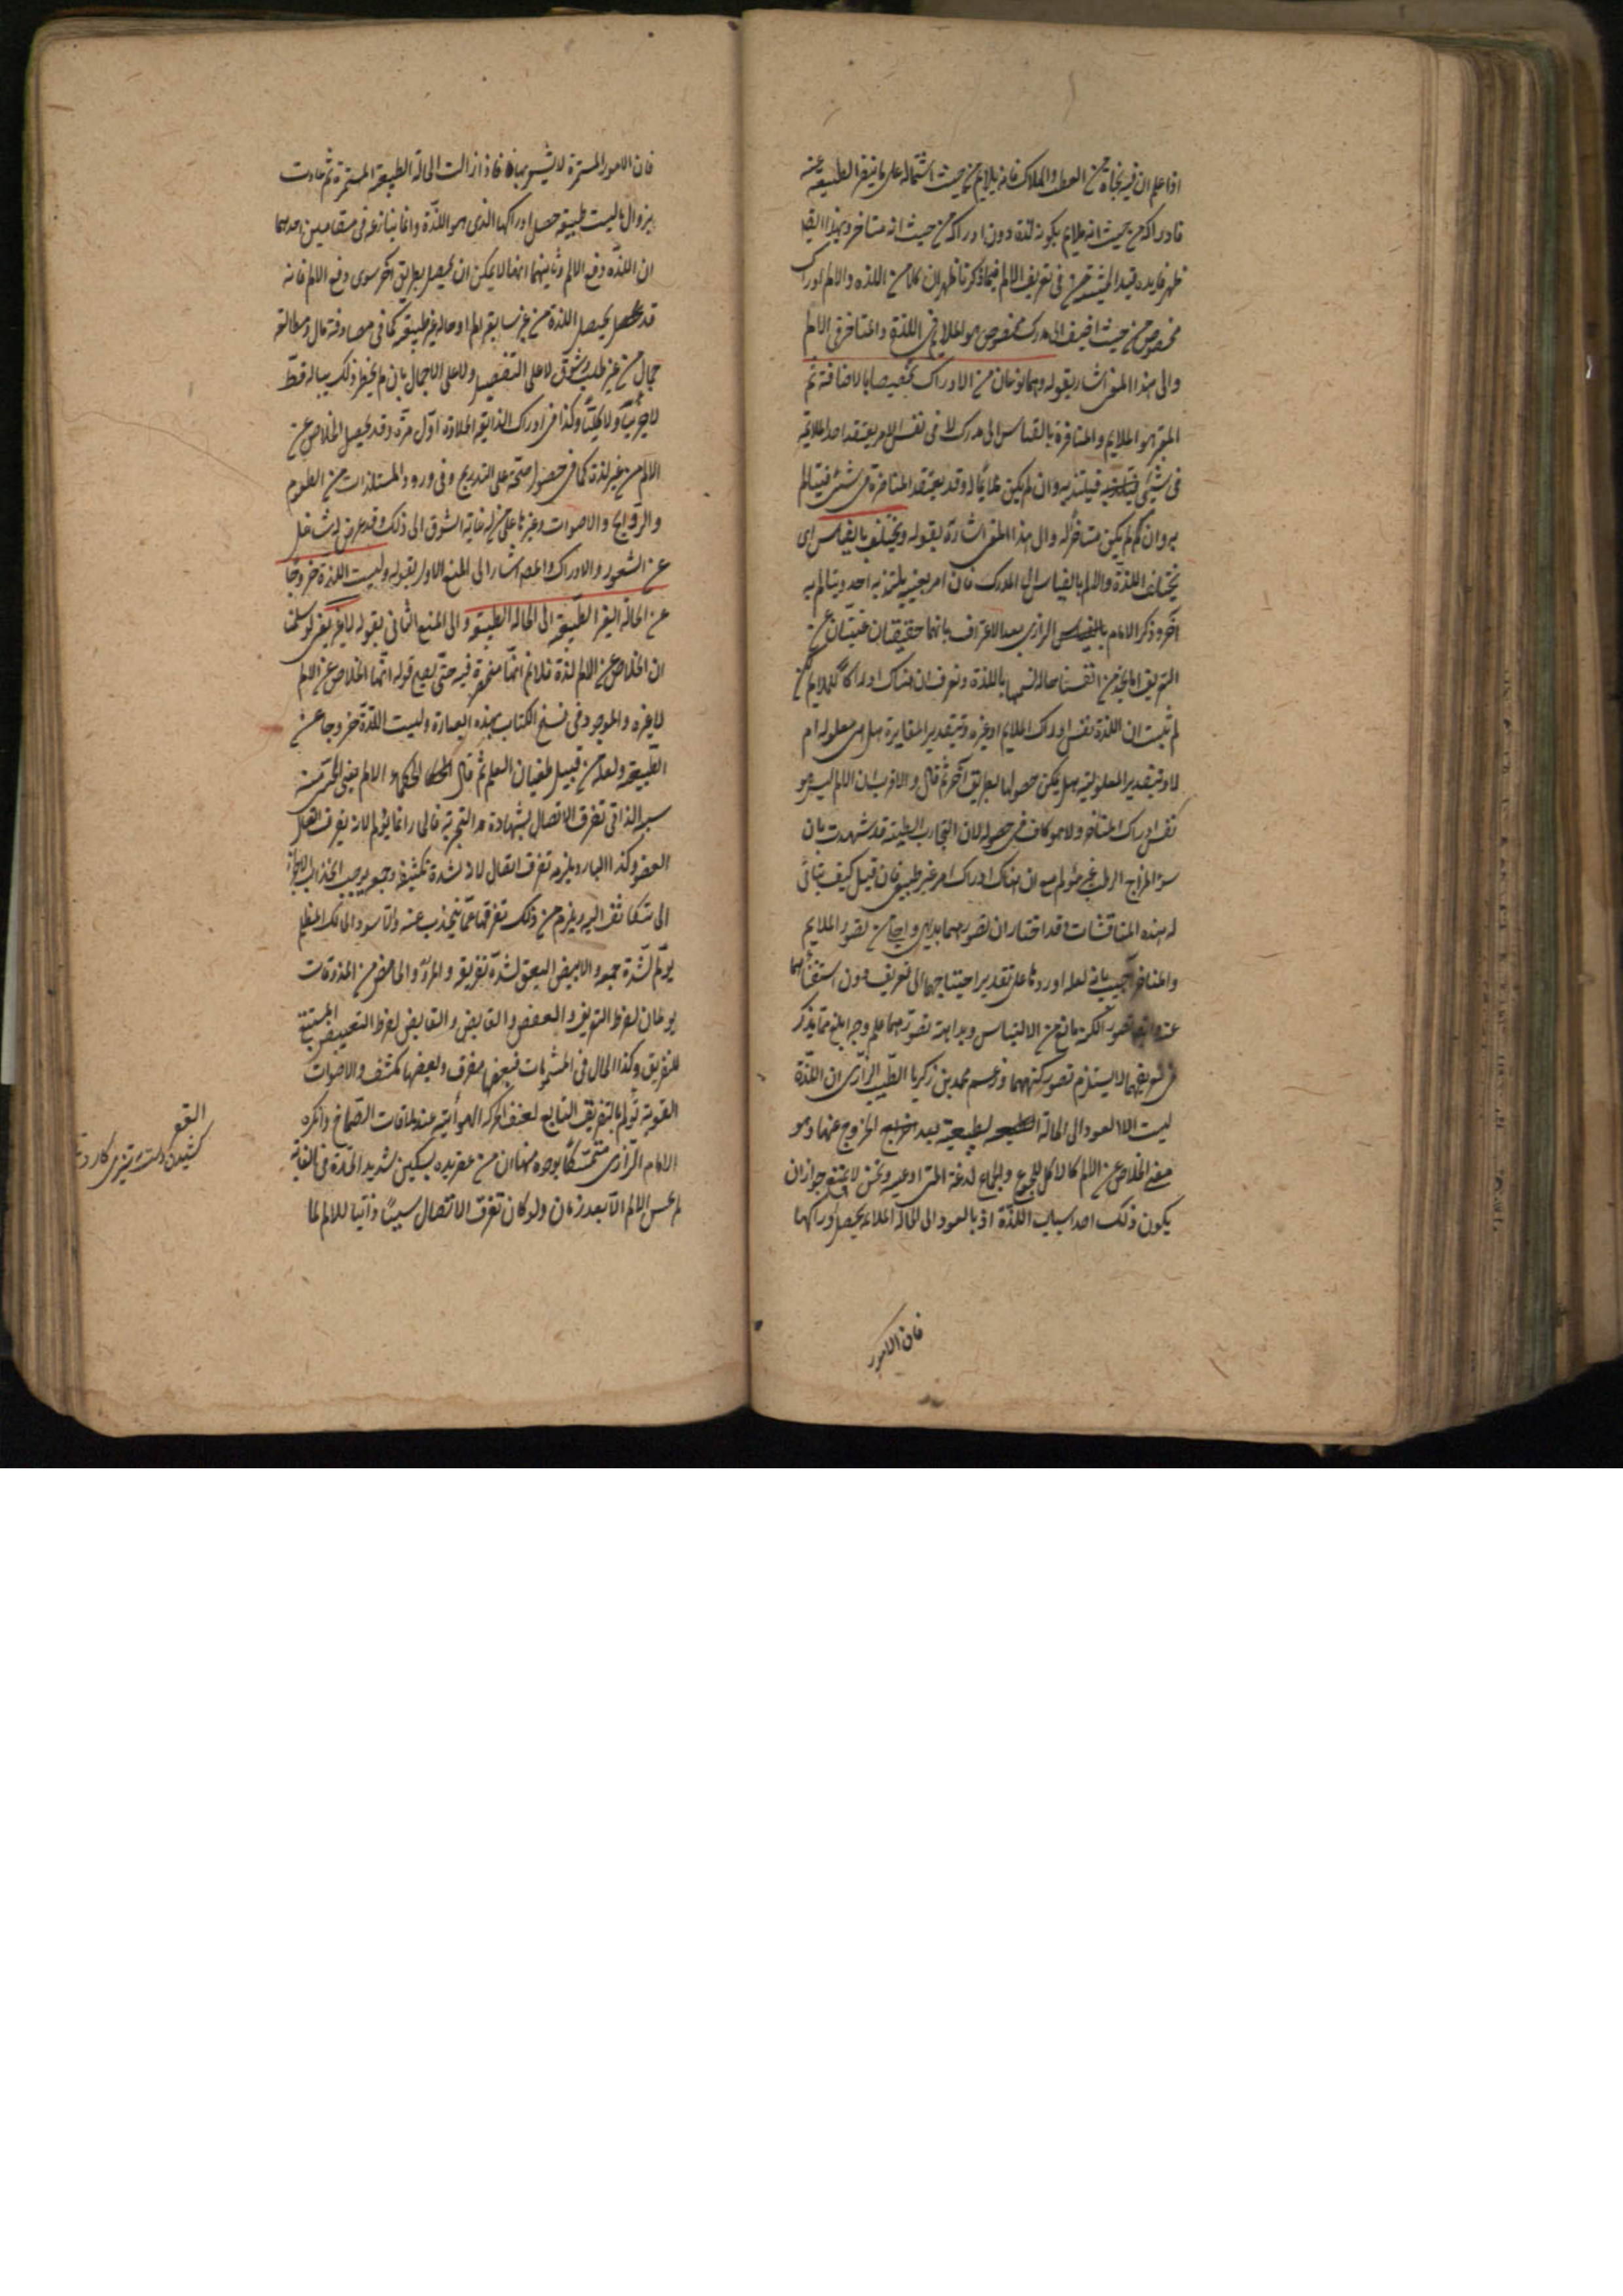 اذا علم ان فيه نجاة من العطب والهلاك فانه يلايم من حيث اشتماله على ما ينفر الطبيعة عنه
فادراكه من حيث انه ملايم يكون لذة دون ادراكه من حيث انه متنافر وبهذا القيد
ظهر فايدة قيد الحيثية في تعريف الالم فيما ذكرنا ظهر ان كلا من اللذة والالم ادراك
مخصوص من حيث اضيف الى مدرك مخصوص هو الملايم في اللذة والمتنافر في الالم
والى هذا المعنى اشار بقوله وهما نوعان من الادراك تخصصا بالاضافة ثم
المعتبر هو الملايم والمنافرة بالقياس الى مدرك لا في نفس الامر يعتقد احد الملايمة
في شيئ فيلتذ به وان لم يكن ملايما له وقد يعتقد المنافرة في شيئ فيتالم
به وان لم يكن متنافرا له والى هذا المعنى اشارة بقوله ويختلف بالقياس اى
يختلف اللذة والالم بالقياس الى المدرك فان امر بعينه يلتذ به احد ويتالم به
آخر وذكر الامام الرازى بعد الاعتراف بانهما حقيقتان غنيتان عن
التعريف انا نجد من انفسنا حالة نسميها باللذة ونعرف ان هناك ادراكا للملايم لكن
لم يثبت ان اللذة نفس ادراك الملايم او غيره وبتقدير المغايرة هل هى معلولة ام
لا وبتقدير المعلولية هل يمكن حصولها بطريق آخر ثم قال والاقرب ان الالم ليس هو
نفس ادراك المنافر ولا هو كاف في حصوله لان التجارب الطبية قد شهدت بان
سوء المزاج الرطب غير مؤلم مع ان هناك ادراك امر غير طبيعى فان قيل كيف يتاتى
له هذه المناقشات وقد اختار ان تصورهما بديهى واجلى من تصور الملايم
والمنافر اجيب بانه لعله اوردها على تقدير احتياجهما الى تعريف دون استغنائهما
عنه وايضا تصور الكنه مانع من الالتباس وبداهة تصورهما على وجه ابلغ مما يذكر
في تعريفهما لا يستلزم تصور كنههما وزعم محمد بن زكريا الطبيب الرازى ان اللذة
ليست الا العود الى الحالة الطبيعة بعد الخروج عنها وهو
معنى الخلاص عن الالم كالاكل للجوع والجماع لدغدغة المنى اوعيته ونحن لا نمنع جواز ان
يكون ذلك احد اسباب اللذة اذ بالعود الى الحالة الملايمة يحصل ادراكها
فان الامور
فان الامور المستمرة لا يشعر بها فاذا زالت الحالة الطبيعة المستمرة ثم عادت
بزوال ما ليست طبيعة حصل ادراكها الذى هو اللذة وانما ينازعه في مقامين احدهما
ان اللذة دفع الالم وثانيهما انها لا يمكن ان يحصل بطريق آخر سوى دفع الالم فانه
قد يحصل اللذة من غير سابقة الم او حالة غير طبيعة كما في مصادفة مال ومطالعة
جمال من غير طلب وشوق لا على التفصيل ولا على الاجمال بان لم يخطر ذلك بباله قط
لا جزئيا ولا كليا وكذا في ادراك الذايقة الحلاوة اول مرة وقد يحصل الخلاص عن
الالم من غير لذة كما في حصول الصحة على التدريج وفي ورود المستلذات من الطعوم
والروايح والاصوات وغيرها على من له غاية الشوق الى ذلك وقد عرض له شاغل
عن الشعور والادراك والمص اشار الى المنع الاول بقوله وليست اللذة خروجا
عن الحالة الغير الطبيعة الى الحالة الطبيعة والى المنع الثانى بقوله لا غير يعنى لو سلمنا
ان الخلاص عن الالم لذة فلا نم انها منحصرة فيه حتى يصح قوله انها الخلاص عن الالم
لا غيره والموجود في نسخ الكتاب بهذه العبارة وليست اللذة خروجا عن
الطبيعة ولعله من قبيل طغيان القلم ثم قال الحكماء الالم يعنى الحسى منه
سببه الذاتى تفرق الاتصال بشهادة التجربة فالحار انما يؤلم لانه يفرق اتصال
العضو وكذا البارد يلزمه تفرق اتصال لانه لشدة تكثيفه وجمعه يوجب انجذاب الاجزاء
الى ما تتكاثف اليه ويلزم من ذلك تفرقها عما ينجذب عنه والاسود الحالك المظلم
يؤلم لشدة جمعه والابيض اليقق لشدة تفريقه والمر والحامض من المذوقات
يؤلمان لفرط التفريق والعفص والقابض لفرط التقبيض المستتبع
للتفريق وكذا الحال في المشمومات فبعضها مفرق وبعضها مكثف والاصوات
القوية تؤلم بالتفريق التابع لعنف الحركة الهوائية عند ملاقات الصماخ وانكره
الامام الرازى متمسكا بوجوه منها ان من عقر يده بسكين شديد الحدة في الغاية
لم يحس الالم الا بعد زمان ولو كان تفرق الاتصال سببا ذاتيا للالم لما